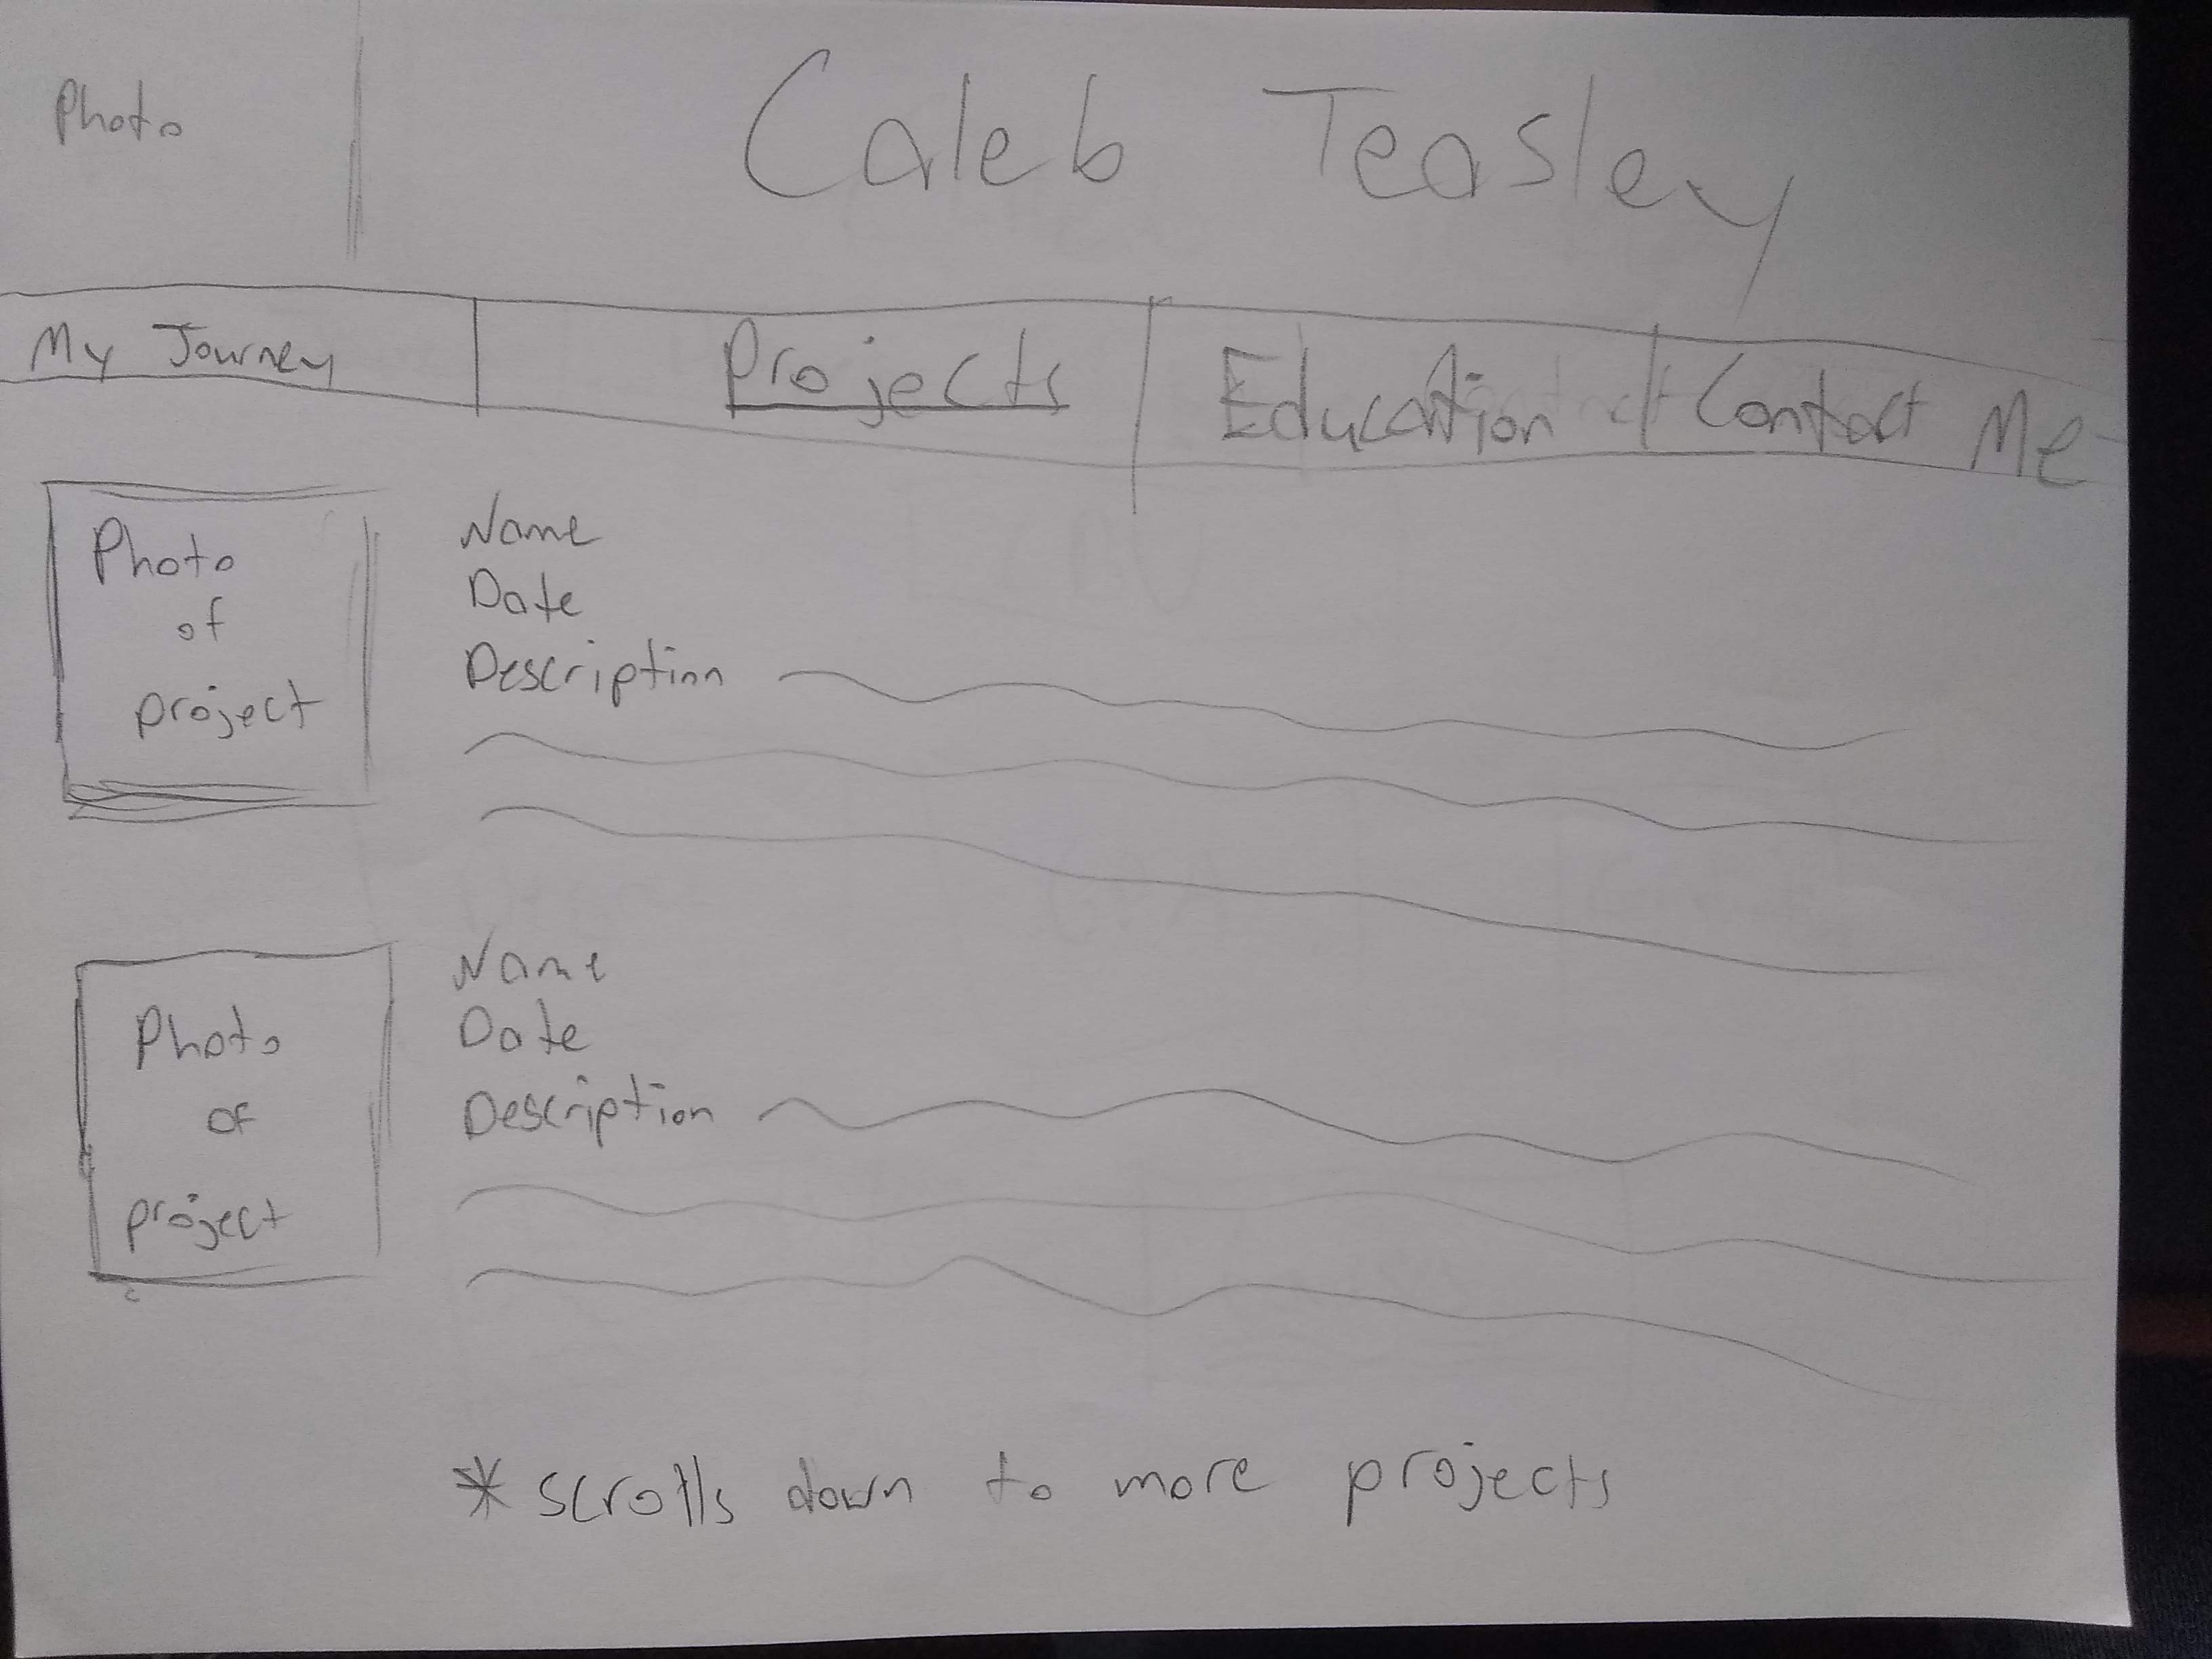 Photo
Caleb Teasley
My Journey Projects Education Contact Me
Photo
of
project
Name
Date
Description
Photo
of
project
Name
Date
Description
* scrolls down to more projects